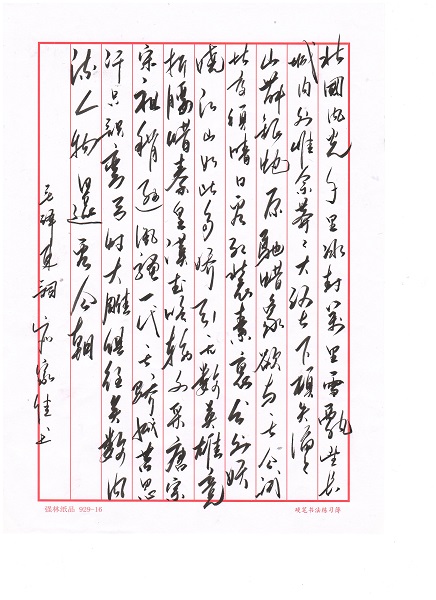 北國风光千里冰封萬里雪飘望长
城内外惟余莽々大河上下顿失滔々
山舞银蛇原驰蜡象欲与天公试
比高须晴日看红装素裹分外妖
娆江山如此多娇引无数英雄竞
折腰惜秦皇漢武略输文采唐宗
宋祖稍逊风骚一代天骄成吉思
汗只识弯弓射大雕俱往矣数风
流人物還看今朝
毛泽东词 家佳书
纸品 929-16
硬笔书法练习薄